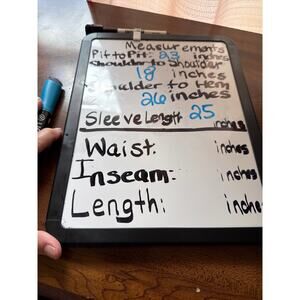 Measurements
Pit to Pit: 23 inches
Shoulder to Shoulder
18 inches
Shoulder to Hem
26 inches
Sleeve Length 25 inches
Waist: inches
Inseam: inches
Length: inches